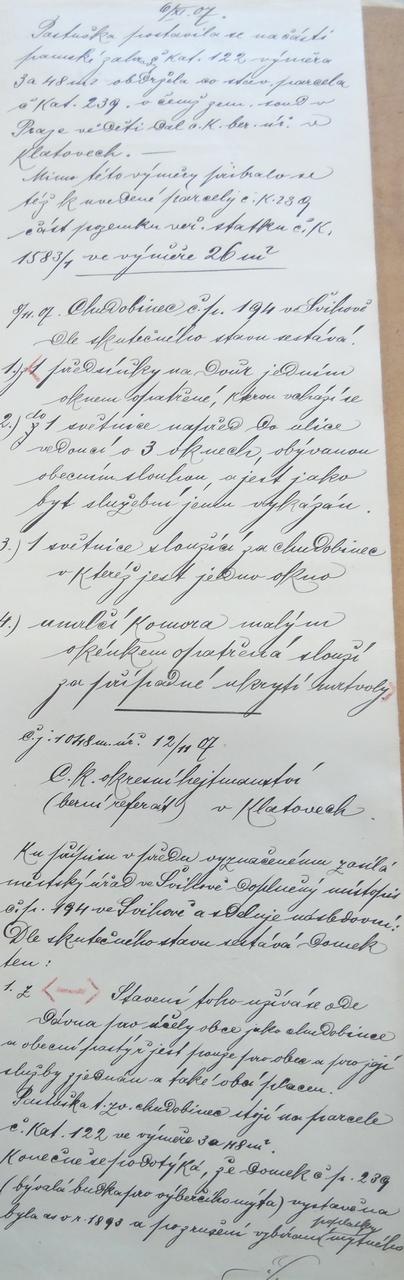 6/XI. 07.
Pastuška postavila se na části
parcely č. kat. 122 výměra
3a 48 m² obdržela co stav. parcela
č. kat. 239. o čemž zem. soud v
Praze ve čís. c. k. ber. úř. v
Klatovech. —
Mimo této výměry přibralo se
též k uvedené parcely č. k. 239
část pozemku veř. statku č. k.
1583/1 ve výměře 26 m²
8/11. 07. Chudobinec č. p. 194 ve Švihově
dle skutečného stavu sestává:
1.) z 1 předsíňky na dvůr jedním
oknem opatřené, kterou vchází se
2.) do 1 světnice napřed do ulice
vedoucí o 3 oknech, obývanou
obecním slouhou, a jest jako
byt služební jemu vykázán.
3.) 1 světnice sloužící za chudobinec
v kteréž jest jedno okno
4.) umrlčí komora malým
okénkem opatřená slouží
za případné ukrytí mrtvoly
č. j. 1048 m. úř. 12/11 07
C. k. okresní hejtmanství
(berní referát) v Klatovech.
Ku přípisu v předu vyznačenému zasílá
městský úřad ve Švihově doplněný místopis
č. p. 194 ve Švihově a sděluje následovní:
Dle skutečného stavu sestává domek
ten:
1. z < — > Stavení toho užívá se ode
dávna pro účely obce jako chudobince
a obecní pastýř jest pouze pro obec a pro její
služby zjednán a také obcí placen.
Pastuška t. zv. chudobinec stojí na parcele
č. kat. 122 ve výměře 3a 48 m².
Konečně se podotýká, že domek č. p. 239
(bývalá budka pro výběrčího mýta) vystavěna
byla as v r. 1893 a po zrušení vybírání poplatku mýtného